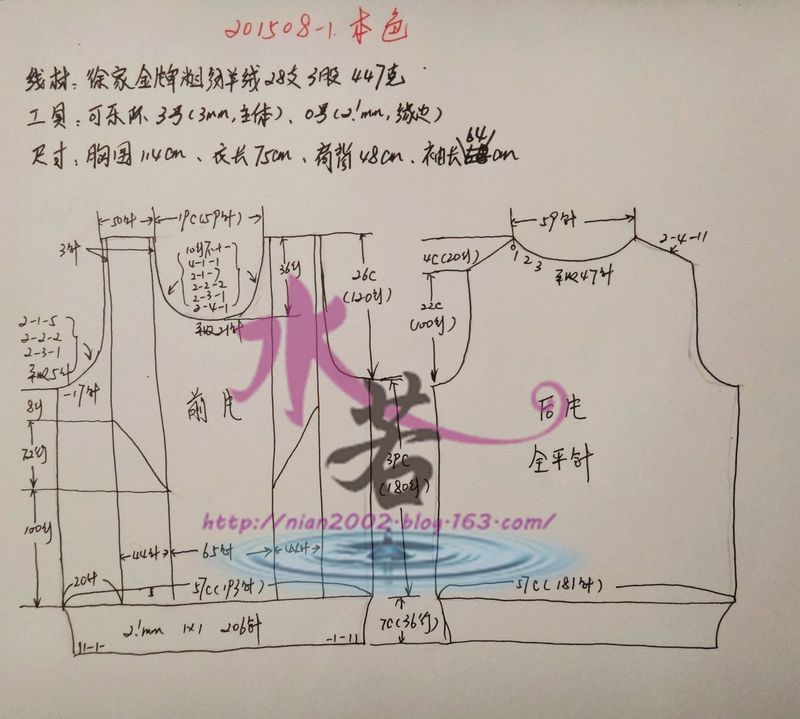 201508-1.本色
线材：徐家金牌粗纺羊绒28支3股 447克
工具：可乐环 3号(3mm,主体)、0号(2.1mm,缘边)
尺寸：胸围114cm、衣长75cm、肩背48cm、袖长64cm
50针
19C(59针)
3针
10行不+-
4-1-1
2-1-7
2-2-2
2-3-1
2-4-1
平收21针
36行
26C
(120行)
2-1-5
2-2-2
2-3-1
平收5针
-17针
8行
72行
100行
前片
44针
65针
44针
20针
57C(193针)
2.1mm 1X1 206针
11-1-
-1-11
39C
(180行)
7C(36行)
59针
0
1
2
3
平收47针
2-4-11
4C(20行)
22C
(100行)
后片
全平针
57C(181针)
水
者
http://nian2002.blog.163.com/